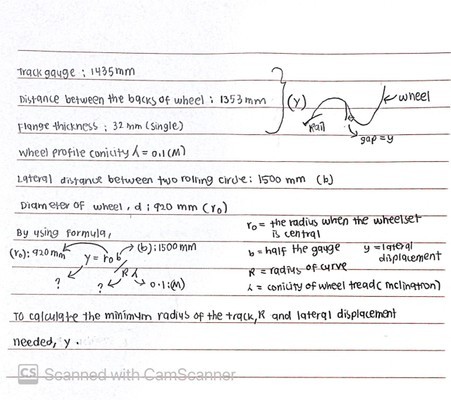 Track gauge : 1435mm
Distance between the backs of wheel : 1353 mm (y)
Flange thickness : 32 mm (single)
wheel
rail
gap = y
Wheel profile conicity λ = 0.1 (M)
Lateral distance between two rolling circle : 1500 mm (b)
Diameter of wheel, d : 920 mm (r₀)
By using formula,
r₀ = the radius when the wheelset is central
(r₀): 920mm y = r₀ b (b): 1500mm
R λ
? ? 0.1 : (M)
b = half the gauge y = lateral displacement
R = radius of curve
λ = conicity of wheel tread (inclination)
To calculate the minimum radius of the track, R and lateral displacement
needed, y .
CS Scanned with CamScanner